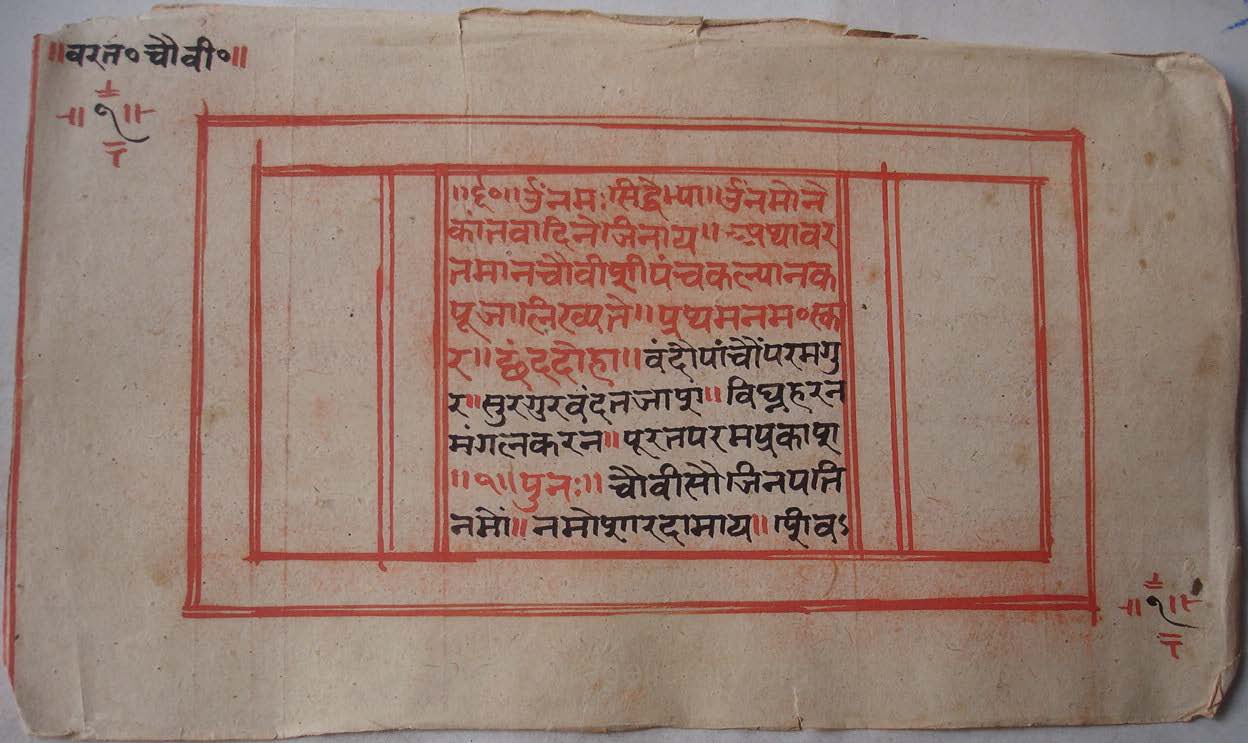 ॥वरत॰चौवी॰॥
॥१॥
॥६०॥ ॐनमः सिद्धेभ्या॥ ॐनमोने
कांतवादिने जिनाय॥ अथावर
तमानचौवीशी पंचकल्यानक
पूजा लिख्यते॥ प्रथमनम॰स्का
र॥ छंददोहा॥ वंदौपांचौंपरमगु
र॥ सुरगुरवंदतजाश॥ विघ्नहरन
मंगलकरन॥ पूरतपरमप्रकाश
॥१॥ पुनः॥ चौवीसौ जिनपति
नमौं॥ नमोशारदामाय॥ शिवऽ
॥१॥